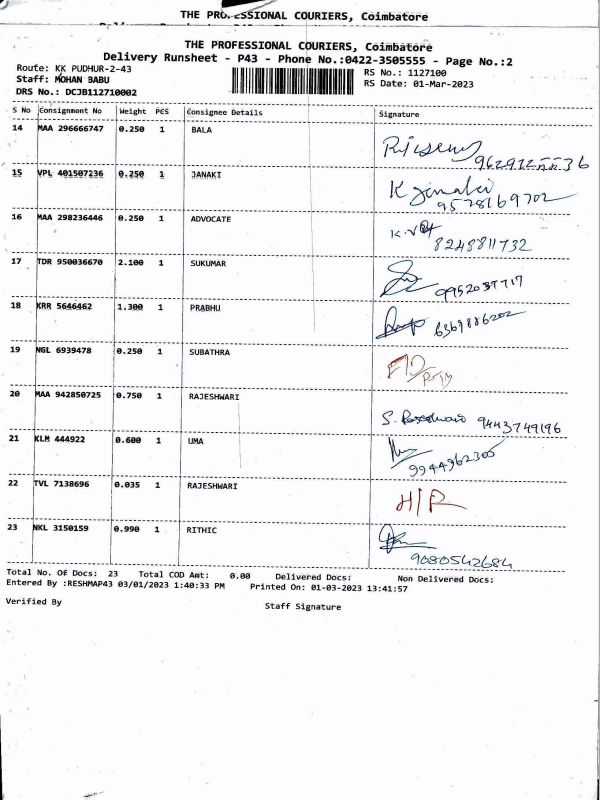 THE PROFESSIONAL COURIERS, Coimbatore
THE PROFESSIONAL COURIERS, Coimbatore
Delivery Runsheet - P43 - Phone No.:0422-3505555 - Page No.:2
Route: KK PUDHUR-2-43 RS No.: 1127100
Staff: MOHAN BABU RS Date: 01-Mar-2023
DRS No.: DCJB112710002
S No Consignment No Weight PCS Consignee Details Signature
14 MAA 296666747 0.250 1 BALA
9629125536
15 VPL 401507236 0.250 1 JANAKI K Janaki
9578169702
16 MAA 298236446 0.250 1 ADVOCATE K.V
8248811732
17 TDR 950036670 2.100 1 SUKUMAR
9952037717
18 KRR 5646462 1.300 1 PRABHU 6369886202
19 NGL 6939478 0.250 1 SUBATHRA
20 MAA 942850725 0.750 1 RAJESHWARI
S. 9443749196
21 KLM 444922 0.600 1 UMA
9944962305
22 TVL 7138696 0.035 1 RAJESHWARI
H/R
23 NKL 3150159 0.990 1 RITHIC
9080542684
Total No. Of Docs: 23 Total COD Amt: 0.00 Delivered Docs: Non Delivered Docs:
Entered By :RESHMAP43 03/01/2023 1:40:33 PM Printed On: 01-03-2023 13:41:57
Verified By Staff Signature